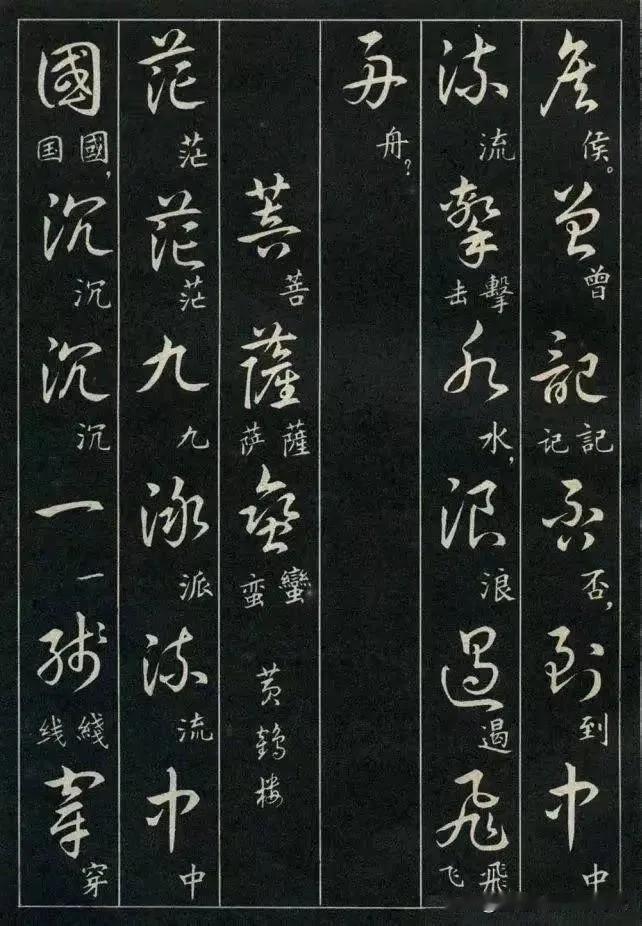 侯 侯。 曾 曾 記 記记 否 否, 到 到 中 中
流 流 擊 擊击 水 水, 浪 浪 遏 遏 飛 飛飞
舟 舟?
菩 菩 薩 薩萨 蠻 蠻蛮 黄鹤楼
茫 茫 茫 茫 九 九 派 派 流 流 中 中
國 國,国 沉 沉 沉 沉 一 一 綫 綫线 穿 穿